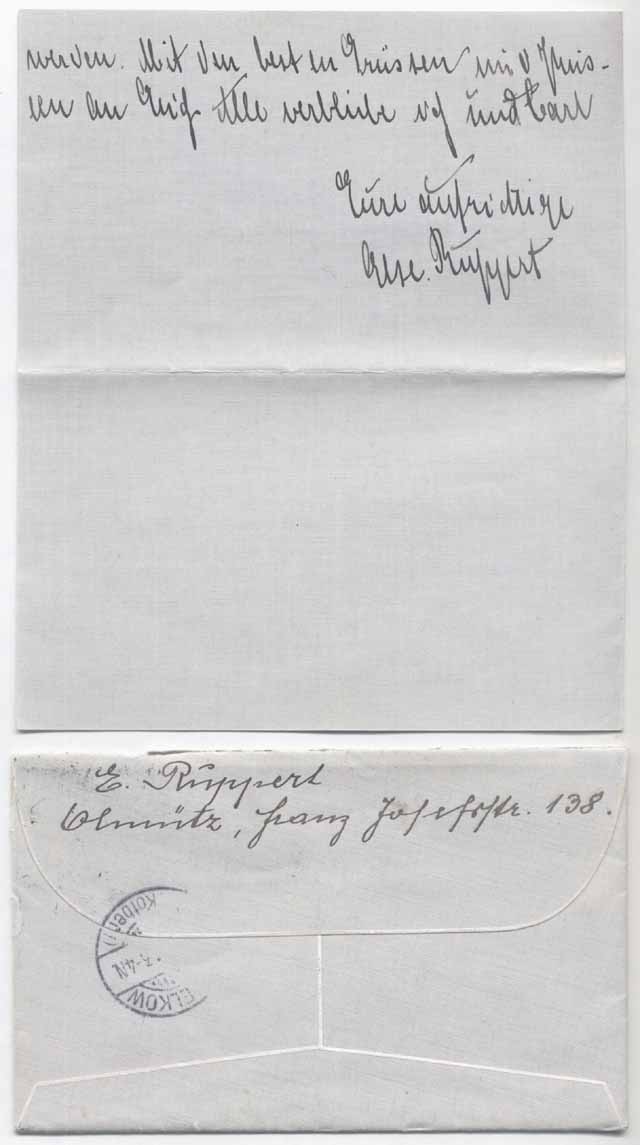 werden. Mit den besten Grüssen und Küs-
sen an Euch Alle verbleibe ich und Carl
Eure aufrichtige
Else. Ruppert
E. Ruppert
Olmütz, Franz Josefsstr. 138.
Kolber
3-4N
ELKOW